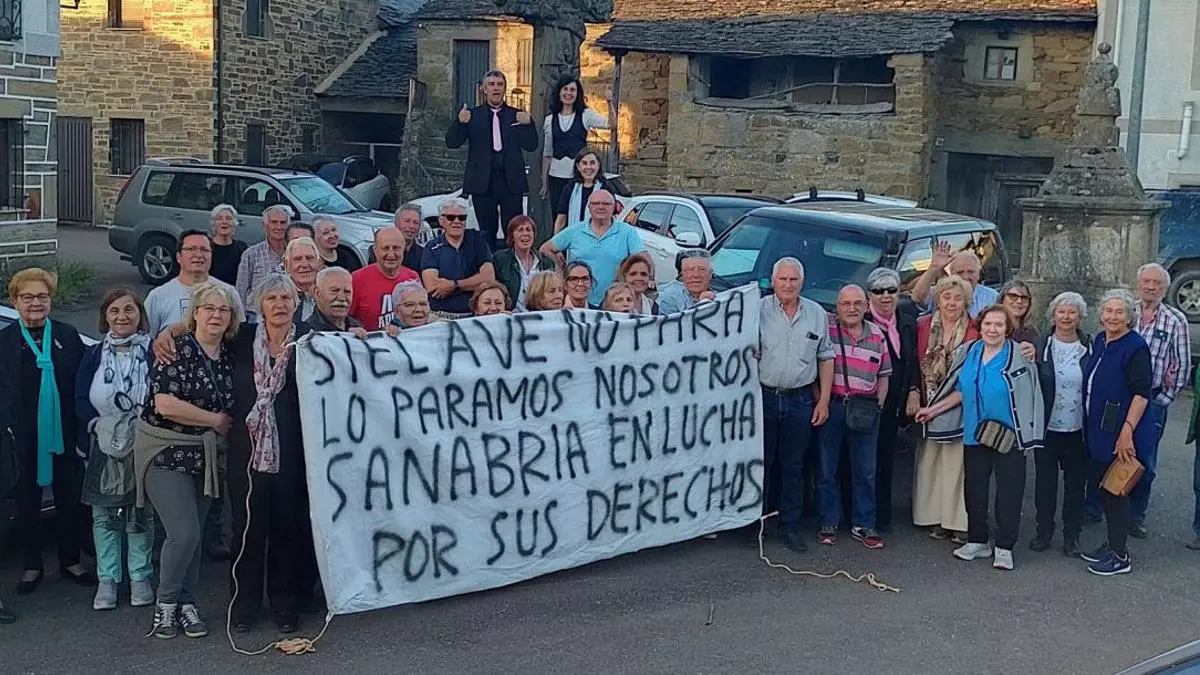 SI EL AVE NO PARA
LO PARAMOS NOSOTROS
SANABRIA EN LUCHA
POR SUS DERECHOS